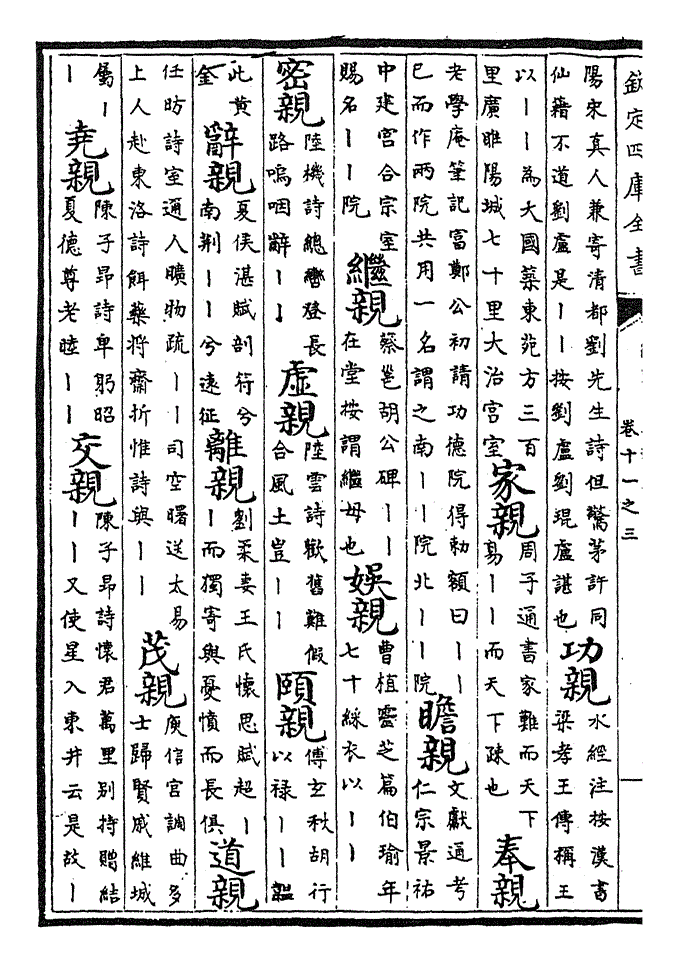 欽定四庫全書
卷十一之三
陽宋真人兼寄清都劉先生詩但驚茅許同
仙籍不道劉盧是丨丨按劉盧劉琨盧諶也
功親
水經注按漢書
梁孝王傳稱王
以丨丨為大國築東苑方三百
里廣睢陽城七十里大治宫室
家親
周子通書家難而天下
易丨丨而天下疎也
奉親
老學庵筆記富鄭公初請功德院得勅額曰丨丨
已而作兩院共用一名謂之南丨丨院北丨丨院
瞻親
文獻通考
仁宗景祐
中建宫合宗室
賜名丨丨院
繼親
蔡邕胡公碑丨丨
在堂按謂繼母也
娛親
曹植靈芝篇伯瑜年
七十綵衣以丨丨
密親
陸機詩總轡登長
路嗚咽辭丨丨
虛親
陸雲詩歡舊難假
合風土豈丨丨
頤親
傅玄秋胡行
以禄丨丨謳
此黄
金
辭親
夏侯湛賦剖符兮
南荆丨丨兮遠征
離親
劉柔妻王氏懷思賦超丨
丨而獨寄與憂憤而長俱
道親
任昉詩室邇人曠物疏丨丨司空曙送太易
上人赴東洛詩餌藥將齋折惟詩與丨丨
茂親
庾信宫調曲多
士歸賢戚維城
屬丨
丨
堯親
陳子昂詩卑躬昭
夏德尊老睦丨丨
交親
陳子昂詩懷君萬里别持贈結
丨丨又使星入東井云是故丨